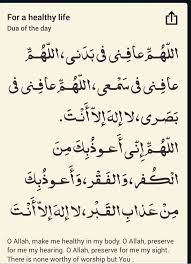 For a healthy life
Dua of the day
اَللّٰهُمَّ عَافِنِى فِى بَدَنِى، اَللّٰهُمَّ
عَافِنِى فِى سَمْعِى، اَللّٰهُمَّ عَافِنِى فِى
بَصَرِى، لَا إِلٰهَ إِلَّا أَنْتَ.
اَللّٰهُمَّ إِنِّى أَعُوذُ بِكَ مِنَ
الْكُفْرِ، وَالْفَقْرِ، وَأَعُوذُ بِكَ
مِنْ عَذَابِ الْقَبْرِ، لَا إِلٰهَ إِلَّا أَنْتَ
O Allah, make me healthy in my body. O Allah, preserve
for me my hearing. O Allah, preserve for me my sight.
There is none worthy of worship but You